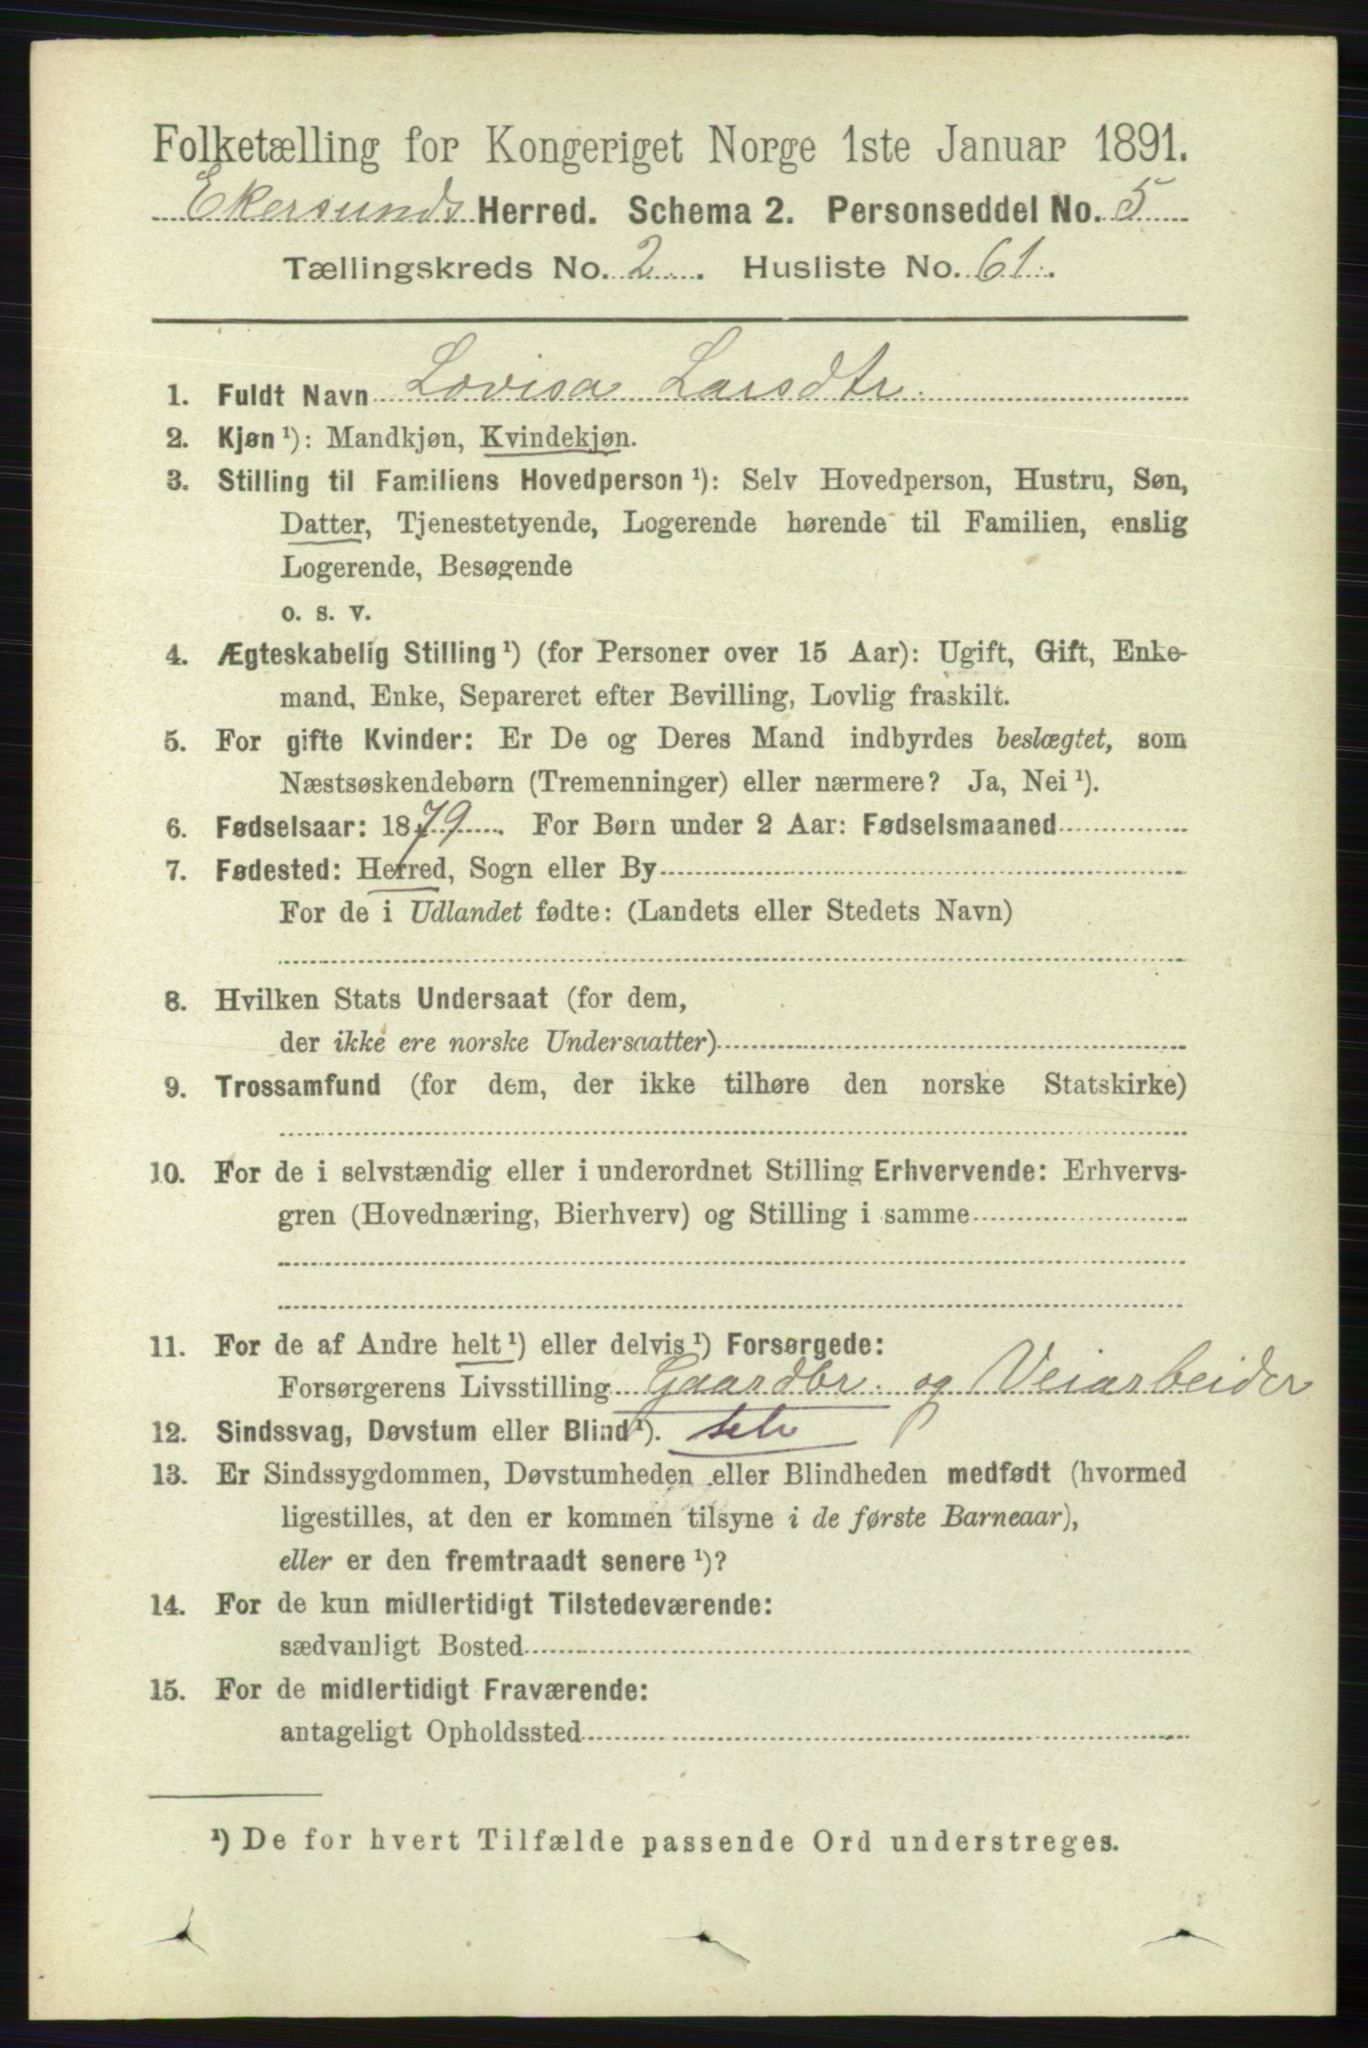 Folketælling for Kongeriget Norge 1ste Januar 1891.
Ekersunds Herred. Schema 2. Personseddel No. 5
Tællingskreds No. 2. Husliste No. 61.
1. Fuldt Navn Lovisa Larsdtr.
2. Kjøn ¹): Mandkjøn, Kvindekjøn.
3. Stilling til Familiens Hovedperson ¹): Selv Hovedperson, Hustru, Søn,
Datter, Tjenestetyende, Logerende hørende til Familien, enslig
Logerende, Besøgende
o. s. v.
4. Ægteskabelig Stilling ¹) (for Personer over 15 Aar): Ugift, Gift, Enke-
mand, Enke, Separeret efter Bevilling, Lovlig fraskilt.
5. For gifte Kvinder: Er De og Deres Mand indbyrdes beslægtet, som
Næstsøskendebørn (Tremenninger) eller nærmere? Ja, Nei ¹).
6. Fødselsaar: 1879. For Børn under 2 Aar: Fødselsmaaned
7. Fødested: Herred, Sogn eller By
For de i Udlandet fødte: (Landets eller Stedets Navn)
8. Hvilken Stats Undersaat (for dem,
der ikke ere norske Undersaatter)
9. Trossamfund (for dem, der ikke tilhøre den norske Statskirke)
10. For de i selvstændig eller i underordnet Stilling Erhvervende: Erhvervs-
gren (Hovednæring, Bierhverv) og Stilling i samme
11. For de af Andre helt ¹) eller delvis ¹) Forsørgede:
Forsørgerens Livsstilling Gaardbr. og Veiarbeider
12. Sindssvag, Døvstum eller Blind ¹).
13. Er Sindssygdommen, Døvstumheden eller Blindheden medfødt (hvormed
ligestilles, at den er kommen tilsyne i de første Barneaar),
eller er den fremtraadt senere ¹)?
14. For de kun midlertidigt Tilstedeværende:
sædvanligt Bosted
15. For de midlertidigt Fraværende:
antageligt Opholdssted
¹) De for hvert Tilfælde passende Ord understreges.